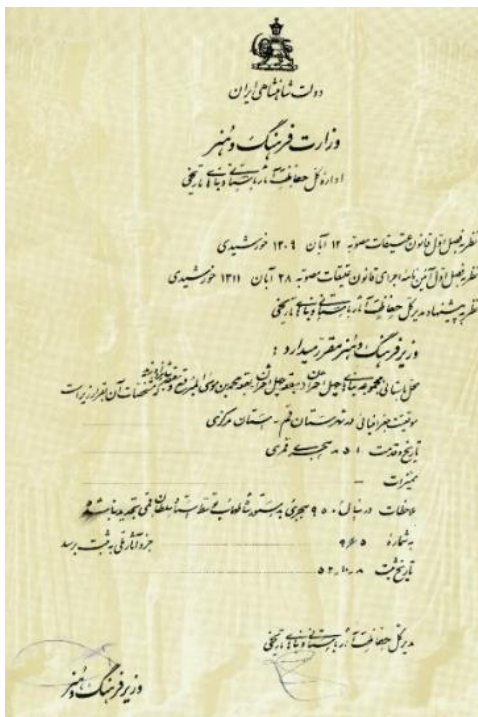 دولت شاهنشاهی ایران
وزارت فرهنگ و هنر
اداره کل حفاظت آثار باستانی و بناهای تاریخی
نظر بفصل اول قانون عتیقات مصوبه ۱۲ آبان ۱۳۰۹ خورشیدی
نظر بفصل اول آئین نامه اجرای قانون عتیقات مصوبه ۲۸ آبان ۱۳۱۱ خورشیدی
نظر به پیشنهاد مدیر کل حفاظت آثار باستانی و بناهای تاریخی
وزیر فرهنگ و هنر مقرر میدارد :
محل باستانی مجموعه بناهای چهل اختران بقعه چهل اختران بقعه محمد بن موسی المبرقع که مشخصات آن بقرار زیر است
موقعیت جغرافیائی در شهرستان قم - استان مرکزی
تاریخ و قدمت ۸۵۱ هجری قمری
ممیزات -
ملاحظات در سال ۹۵۰ هجری بدستور شاه طهماسب توسط استاد سلطان قمی تجدید بنا شده
بشماره ۹۶۵ جزو آثار ملی به ثبت برسد
تاریخ ثبت ۵۲-۱۰-۸
مدیر کل حفاظت آثار باستانی و بناهای تاریخی
وزیر فرهنگ و هنر